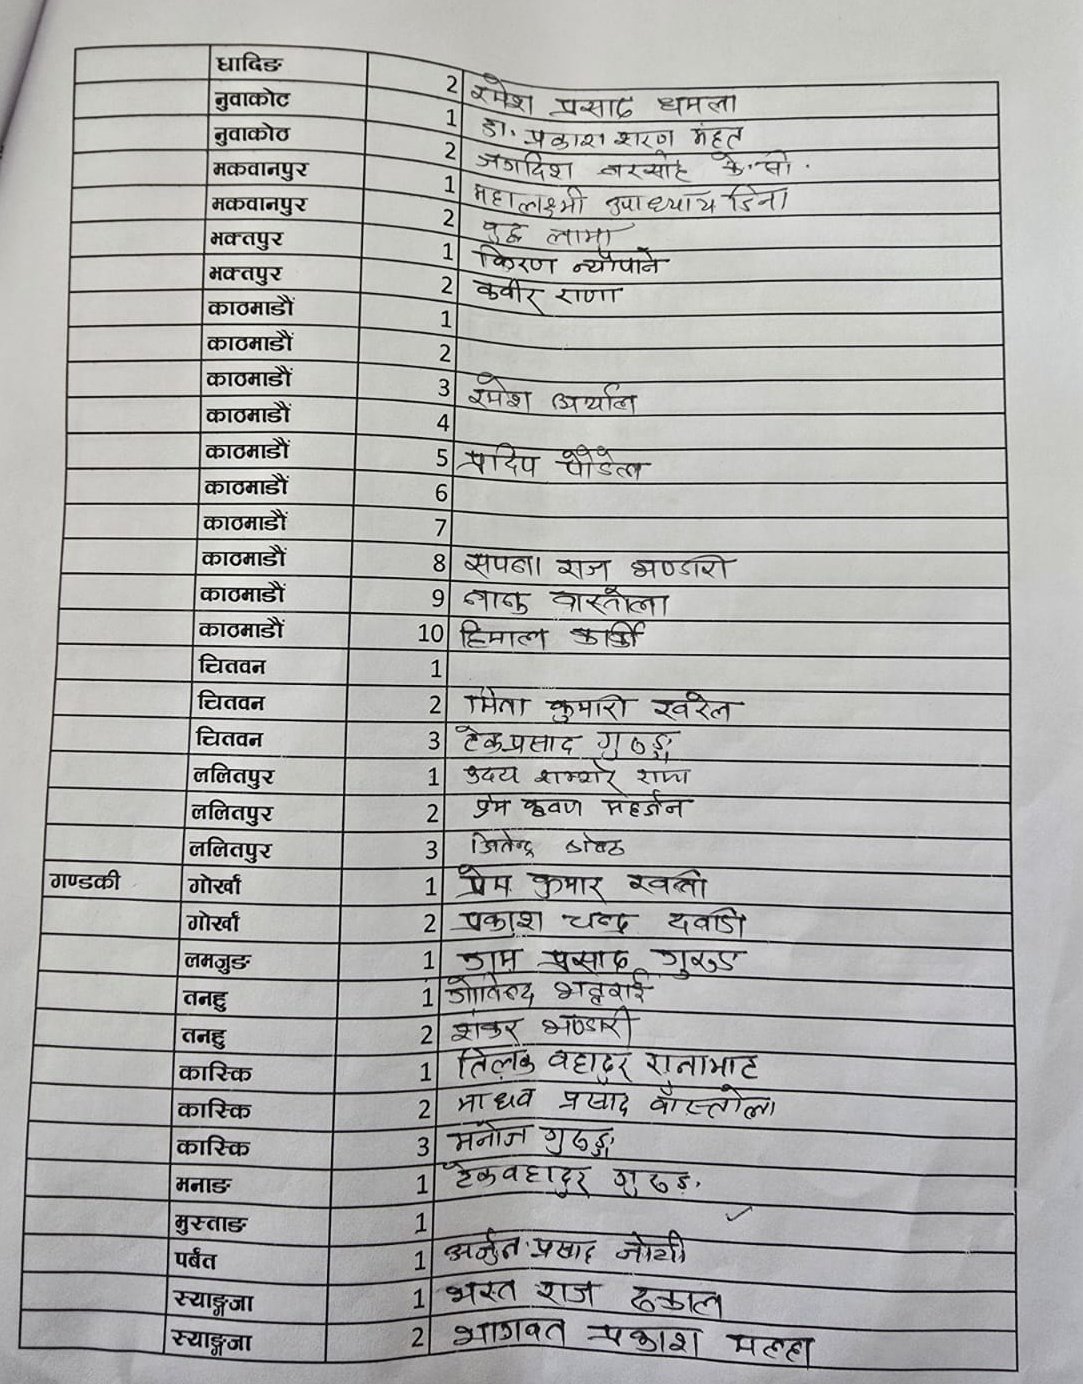 धादिङ 2 रमेश प्रसाद धमला
नुवाकोट 1 डा. प्रकाश शरण महत
नुवाकोठ 2 जगदिश नरसिंह के.सी.
मकवानपुर 1 महालक्ष्मी उपाध्याय डिना
मकवानपुर 2 वुद्ध लामा
भक्तपुर 1 किरण न्यौपाने
भक्तपुर 2 कवीर राणा
काठमाडौं 1
काठमाडौं 2
काठमाडौं 3 रमेश अर्याल
काठमाडौं 4
काठमाडौं 5 प्रदिप पौडेल
काठमाडौं 6
काठमाडौं 7
काठमाडौं 8 सपना राज भण्डारी
काठमाडौं 9 नानु वास्तोला
काठमाडौं 10 हिमाल कार्की
चितवन 1
चितवन 2 मिना कुमारी खरेल
चितवन 3 टेकप्रसाद गुरुङ्ग
ललितपुर 1 उदय शम्शेर राणा
ललितपुर 2 प्रेम कृष्ण महर्जन
ललितपुर 3 जितेन्द्र श्रेष्ठ
गण्डकी गोर्खा 1 प्रेम कुमार खत्री
गोर्खा 2 प्रकाश चन्द्र दवाडी
लमजुङ 1 जाम प्रसाद गुरुङ
तनहु 1 गोविन्द भट्टराई
तनहु 2 शंकर भण्डारी
कास्कि 1 तिलक वहादुर रानाभाट
कास्कि 2 माधव प्रसाद वाँस्तोला
कास्कि 3 मनोज गुरुङ्ग
मनाङ 1 टेकवहादुर गुरुङ
मुस्ताङ 1
पर्बत 1 अर्जुन प्रसाद जोशी
स्याङ्गजा 1 भरत राज ढकाल
स्याङ्गजा 2 भागवत प्रकाश मल्ल